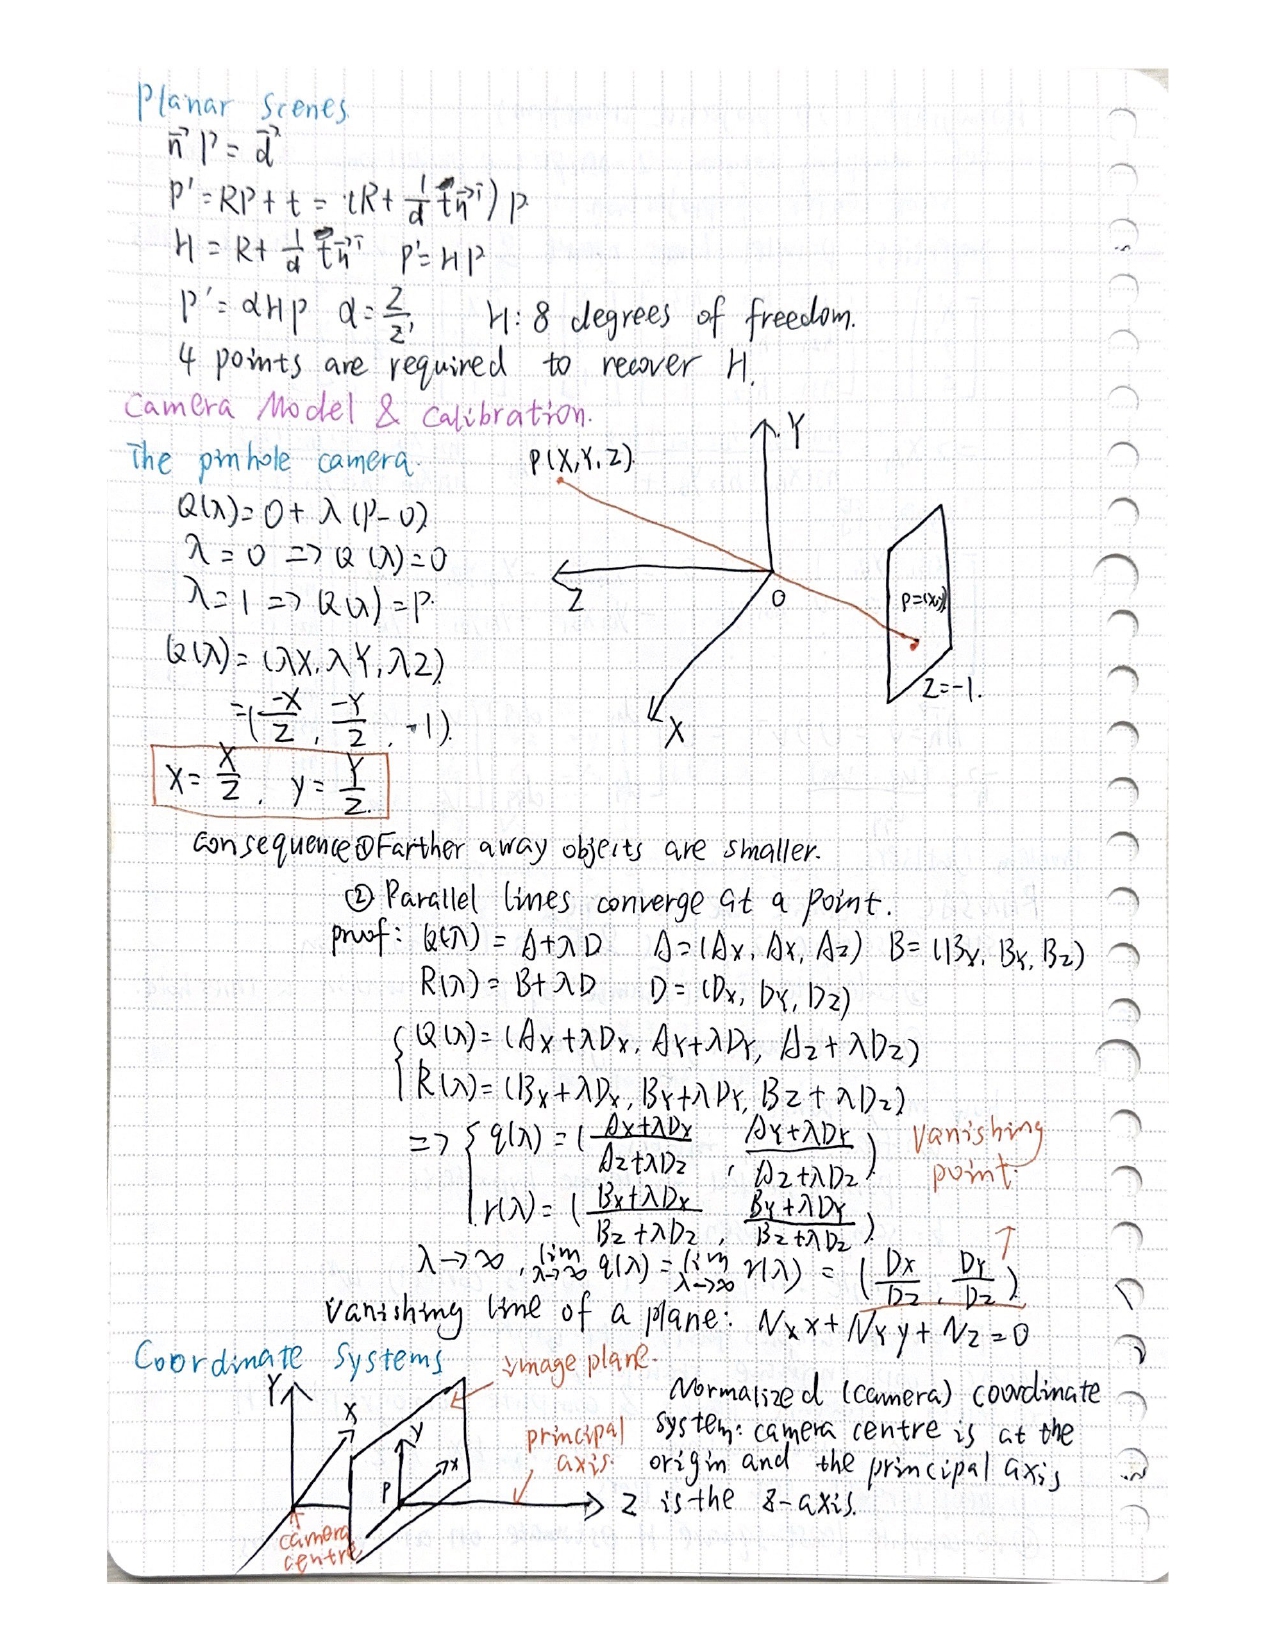 Planar Scenes
n⃗ P = d⃗
P' = RP + t = (R + 1/d t⃗n⃗ᵀ) P
H = R + 1/d t⃗n⃗ᵀ P' = HP
P' = αHP α = Z/Z' H: 8 degrees of freedom.
4 points are required to recover H.
Camera Model & Calibration.
The pinhole camera.
P(X, Y, Z)
Y
Z
O
X
p=(x,y)
Z=-1.
Q(λ) = O + λ (P-O)
λ = 0 => Q(λ) = 0
λ = 1 => Q(λ) = P.
Q(λ) = (λX, λY, λZ)
= (-X/Z, -Y/Z, -1).
x = X/Z, y = Y/Z.
Consequence ① Farther away objects are smaller.
② Parallel lines converge at a point.
proof: Q(λ) = A+λD A = (Ax, Ax, Az) B = (Bx, BY, Bz)
R(λ) = B+λD D = (Dx, DY, Dz)
{ Q(λ) = (Ax+λDx, AY+λDY, Az+λDz)
R(λ) = (Bx+λDx, BY+λDY, Bz+λDz)
=> { q(λ) = (Ax+λDx/Az+λDz, AY+λDY/Az+λDz)
vanishing
point.
r(λ) = (Bx+λDx/Bz+λDz, BY+λDY/Bz+λDz)
λ→∞, lim λ→∞ q(λ) = lim λ→∞ r(λ) = (Dx/Dz, DY/Dz)
Vanishing line of a plane: Nx x + NY y + Nz = 0
Coordinate Systems
image plane.
Y
X
y
x
P
Z
principal
axis
camera
centre
Normalized (camera) coordinate
system: camera centre is at the
origin and the principal axis
is the z-axis.